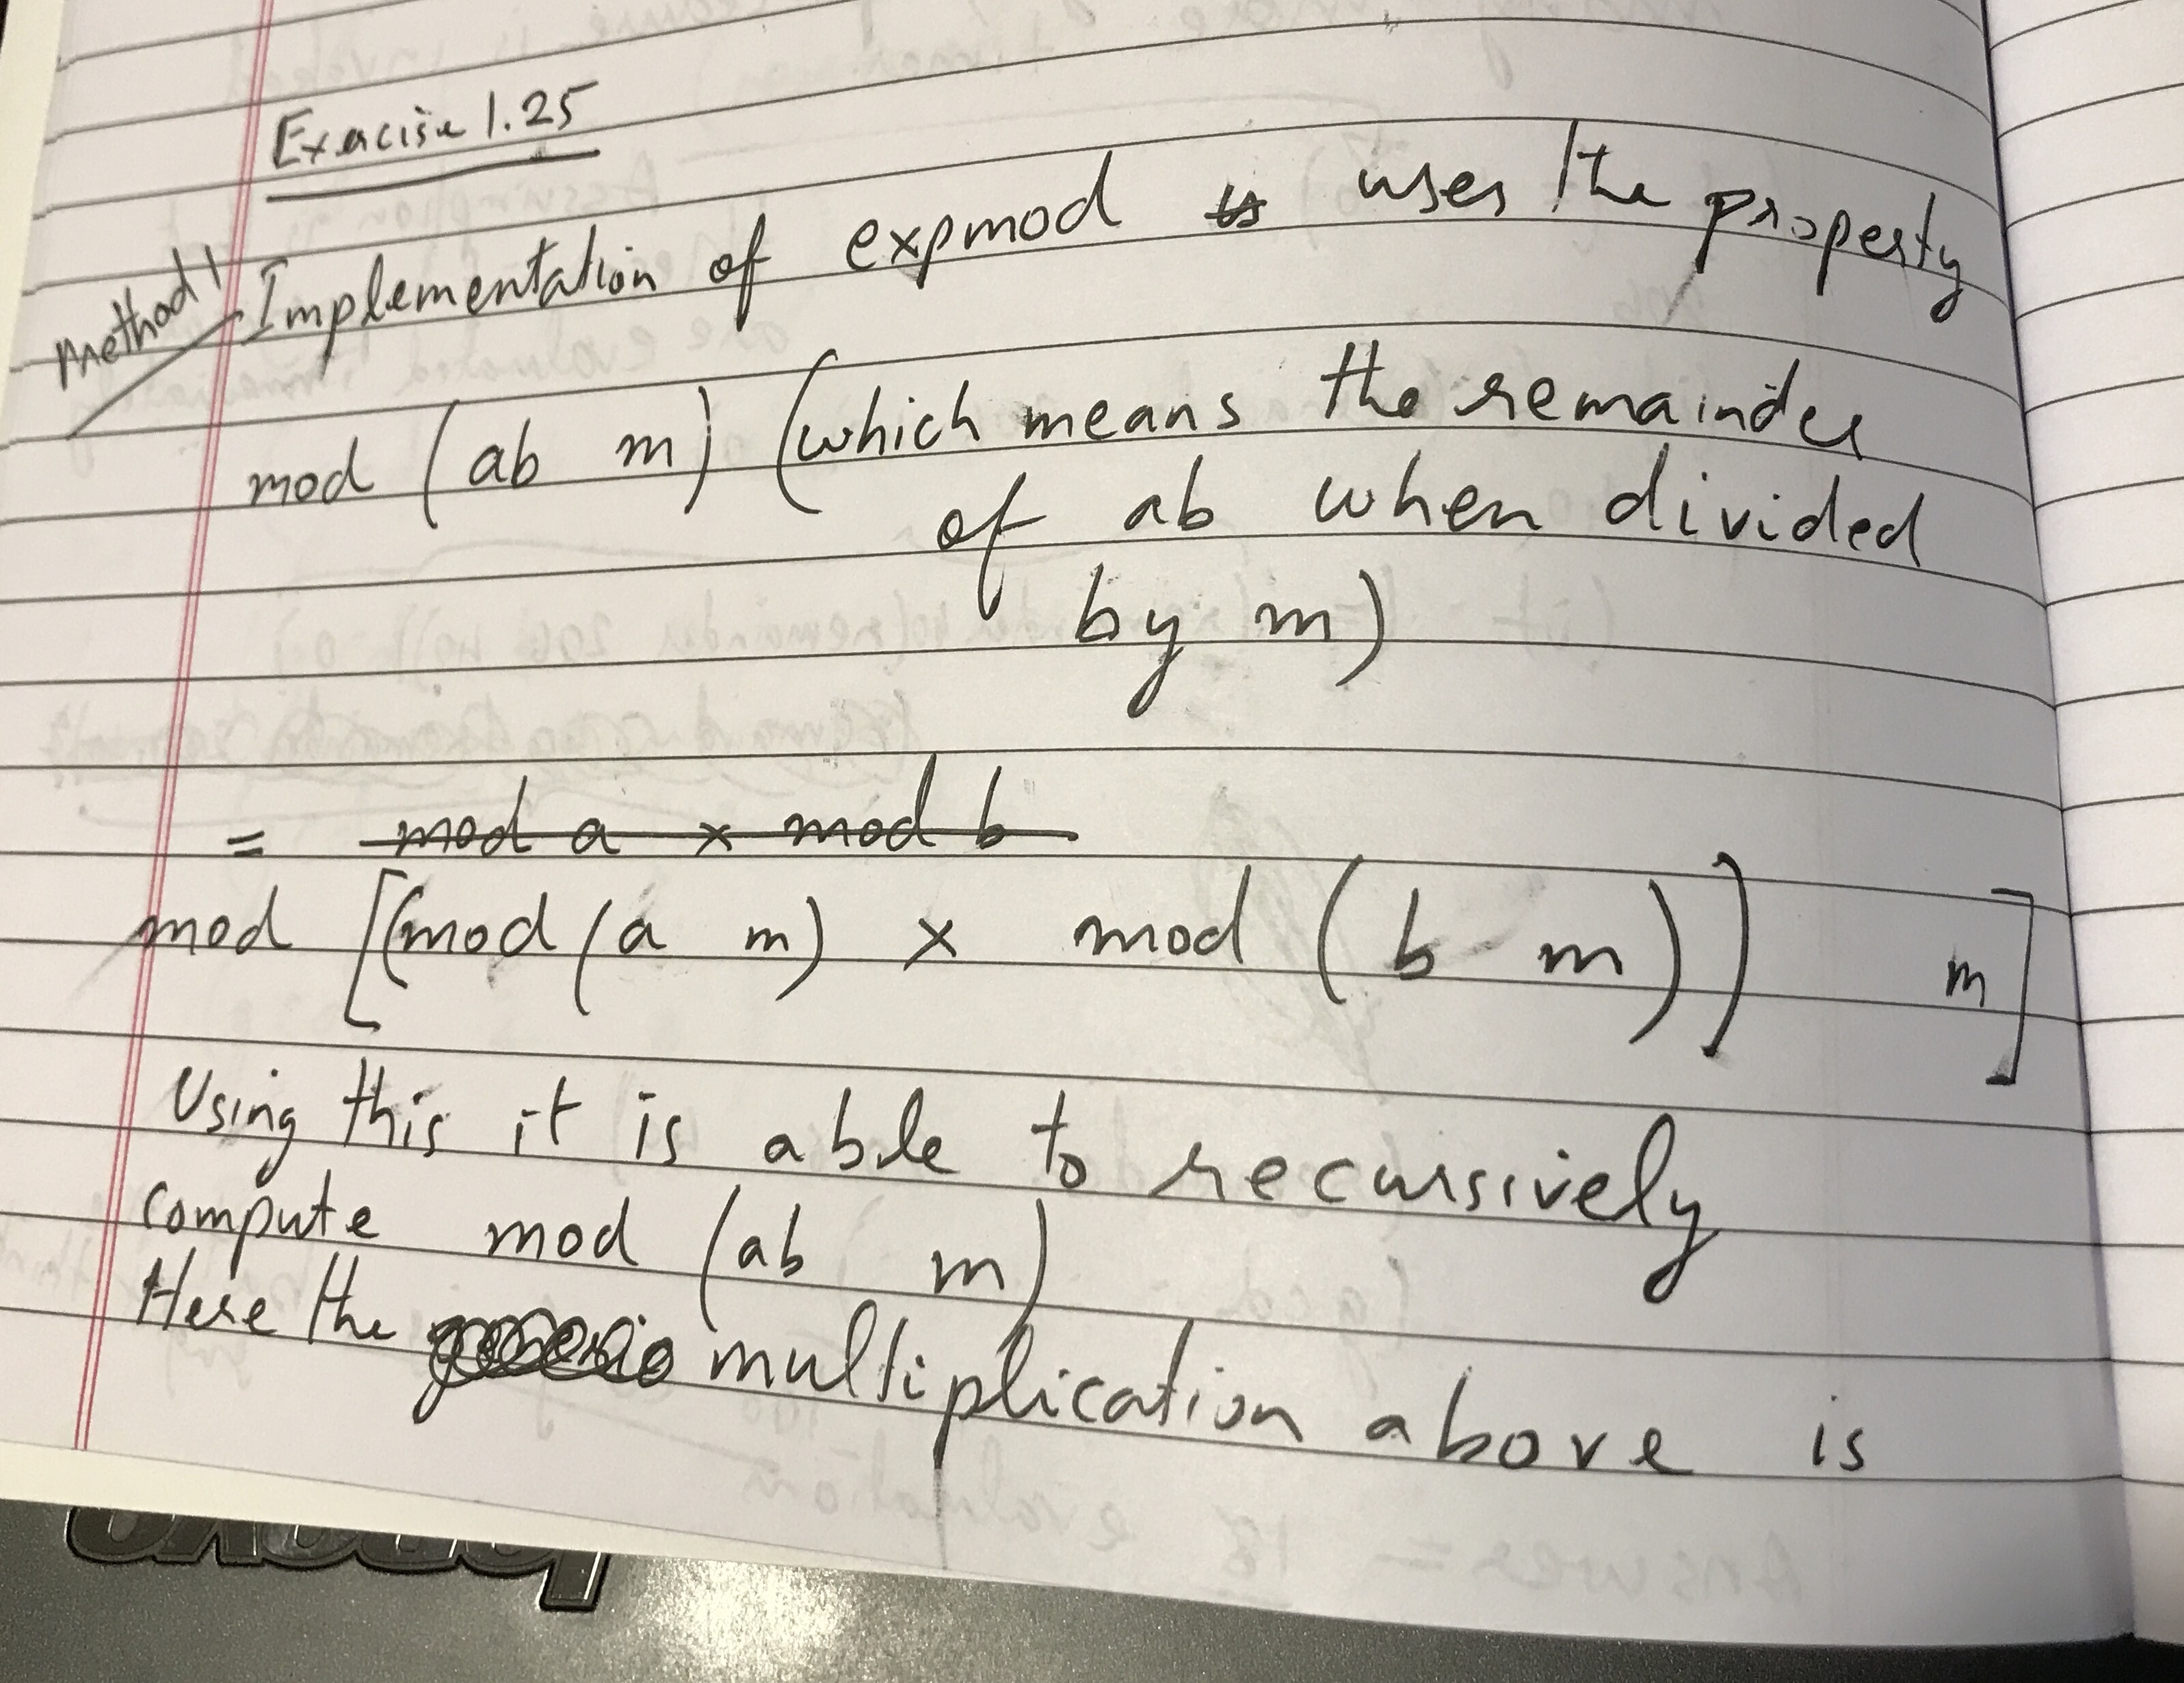 Exercise 1.25
Method 1
Implementation of expmod uses the property
mod (ab m) (which means the remainder
of ab when divided
by m)
= mod a × mod b
mod [(mod (a m) × mod (b m)) m]
Using this it is able to recursively
compute mod (ab m)
Here the multiplication above is
lenovo